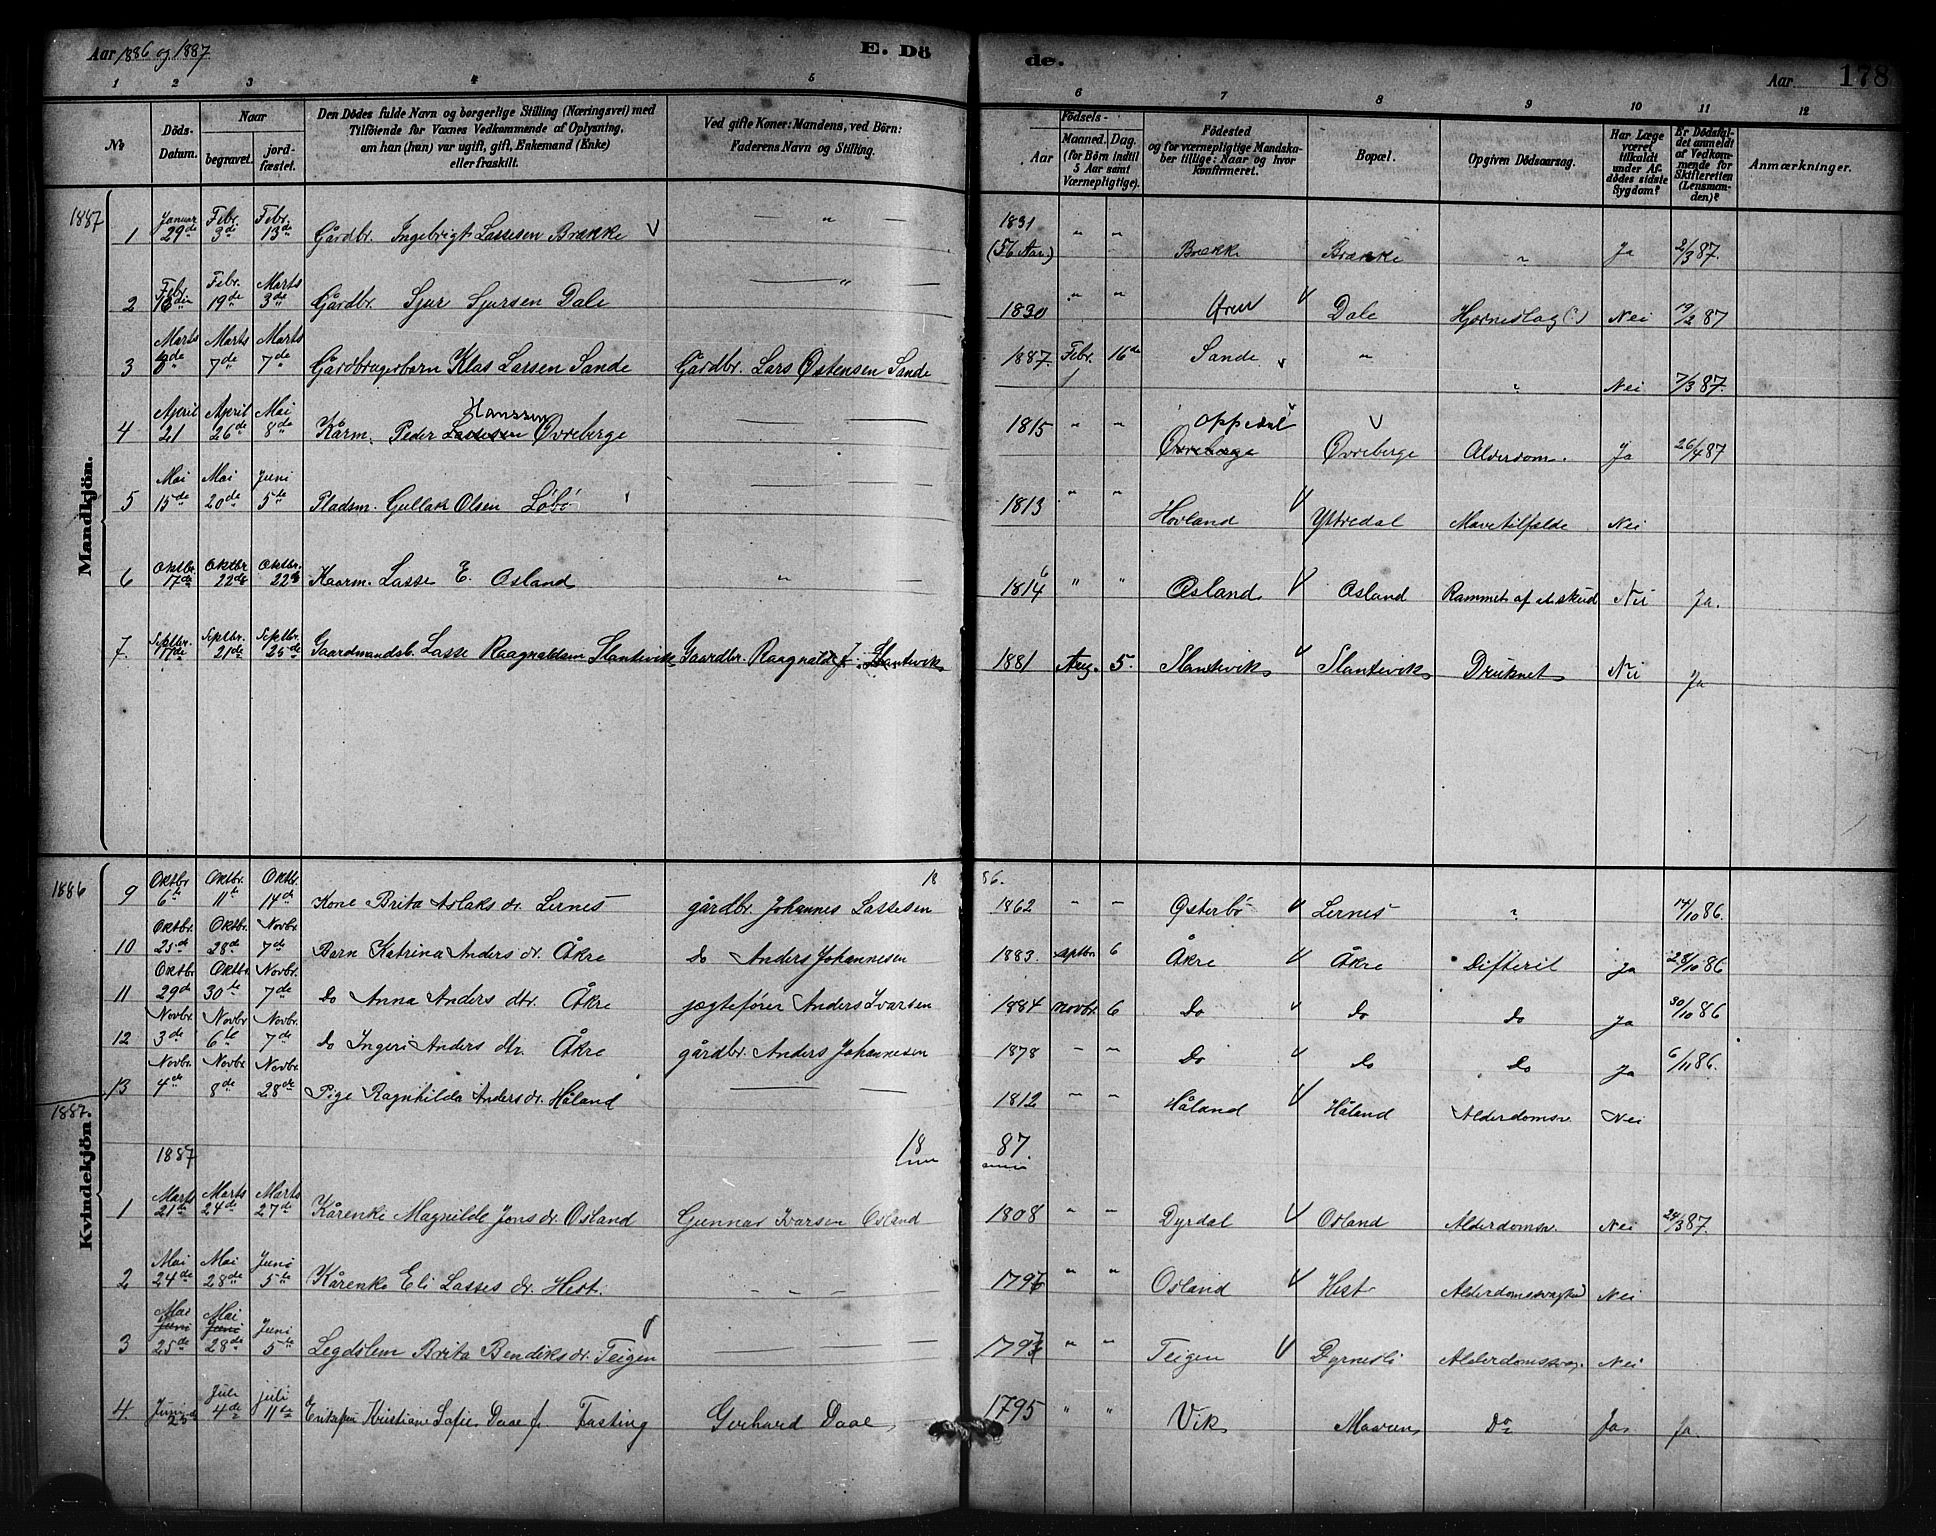 Aar 1886 og 1887 E. Dö de. Aar 178
1 2 3 4 5 6 7 8 9 10 11 12
No
Döds-Datum.
Naar
begravet.
jord-fæstet.
Den Dödes fulde Navn og borgerlige Stilling (Næringsvei) med
Tilföiende for Voxnes Vedkommende af Oplysning,
om han (hun) var ugift, gift, Enkemand (Enke)
eller fraskilt.
Ved gifte Koner: Mandens, ved Börn:
Faderens Navn og Stilling.
Födsels-
Aar
Maaned. Dag.
(for Börn indtil
5 Aar samt
Værnepligtige).
Födested
og for værnepligtige Mandska-
ber tillige: Naar og hvor
konfirmeret.
Bopæl.
Opgiven Dödsaarsag.
Har Læge
været
tilkaldt
under Af-
dödes sidste
Sygdom?
Er Dödsfal-
det anmeldt
af Vedkom-
mende for
Skifteretten
(Lensman-
den)?
Anmærkninger.
Mandkjön.
1887
1 Januar 29de Febr. 3de Febr. 13de Gårdbr. Ingebrigt Lassesen Brække — " — 1831 (56 Aar.) " " Brække Brække " Ja 2/3 87.
2 Febr. 19de Febr. Marts 3de Gårdbr. Sjur Sjursen Dale — " 1830 " " Dale Hjerneslag (?) Nei 87
3 Marts Marts 7de Marts 7de Gårdbrugerbarn Klas Larsen Sande Gårdbr. Lars Østensen Sande 1887 Febr. 16de Sande " " Nei 7/3 87.
4 April 21 April 26de Mai 8de Kårm. Peder Lassesen Hanssen Øvreberge — 1815 " " Oppedal Øvreberge Øvreberge Alderdom. Ja 26/4 87
5 Mai 15de Mai 20de Juni 5de Pladsm. Gullak Olsen Løbø — 1813 " " Hovland Yttredal Mavetilfælde Nei
6 Oktbr. 17de Oktbr 22de Oktbr. 22de Kaarm. Lasse E. Osland " — 1814 6 " " Osland Osland Rammet af et skud Nei Ja.
7. Septbr. 17de Septbr. 21de Septbr. 25de Gaardmandsb. Lasse Raagnaldsen Slantevik Gaardbr. Raagnald J. Slantevik 1881 Aug. 5. Slantevik Slantevik Druknet Nei Ja
Kvindekjön.
1886 18 86.
9 Oktbr 6te Oktbr. 11te Oktbr. 14de Kone Brita Aslaks dr. Lernes gårdbr. Johannes Lassesen 1862 " " Østerbø Lernes " 14/10 86.
10 Oktbr. 25de Oktbr. 28de Novbr. 7de Barn Katrina Anders dr. Åkre do Anders Johannesen 1883. Septbr 6 Åkre Åkre Difterit ja 28/10 86
11 Oktbr 29d Oktbr. 30te Novbr. 7de do Anna Anders dtr. Åkre jægtefører Anders Ivarsen 1884 Novbr. 6 do do do ja 30/10 86
12 Novbr. 3de Novbr. 6te Novbr. 7de do Ingeri Anders dtr. Åkre gårdbr. Anders Johannesen 1878 " " do do do ja 6/11 86.
13 Novbr. 4de Novbr. 8de Novbr. 28de Pige Ragnhilda Anders dr. Håland — 1812 " " Håland Håland Alderdomsv. Nei
1887.
1887 18 87.
1 Marts 21de Marts 24de Marts 27de Kårenke Magnilde Jons dr. Osland Gunnar Ivarsen Osland 1808 " " Dyrdal Osland Alderdomsv. Nei 24/3 87.
2 Mai 24de Mai 28de Juni 5te Kårenke Eli Lasses dr. Hest. — 1796 " " Osland Hest Alderdomssvaghed Nei
3 Mai Juni 25de Mai Juni 28de Juni 5te Legdslem Brita Bendiks dr. Teigen — " " Teigen Dyrnesli Alderdomssvag. Nei
4. Juni 25 Juli 4de juli 11te Kristiane Sofie Daae f. Fasting Gerhard Daae 1795 " " Vik Maaren Do Ja Ja.